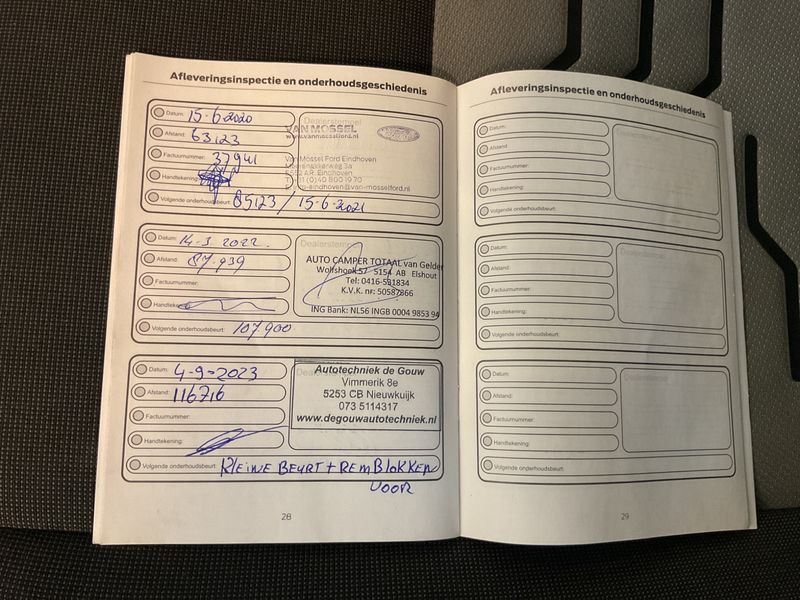 Afleveringsinspectie en onderhoudsgeschiedenis
Datum: 15-6-2020
Afstand: 63123
Factuurnummer: 37941
Handtekening:
Volgende onderhoudsbeurt: 85123 / 15-6-2021
Dealerstempel
VAN MOSSEL
www.vanmosselford.nl
Van Mossel Ford Eindhoven
AR Eindhoven
(0)40 800 19 70
eindhoven@van-mosselford.nl
Datum: 14-3-2022
Afstand: 87.939
Factuurnummer:
Handtekening:
Volgende onderhoudsbeurt: 107.900
Dealerstempel
AUTO CAMPER TOTAAL van Gelder
Wolfshoek 57 5154 AB Elshout
Tel: 0416-531834
K.V.K. nr: 50587866
ING Bank: NL56 INGB 0004 9853 94
Datum: 4-9-2023
Afstand: 116716
Factuurnummer:
Handtekening:
Volgende onderhoudsbeurt: KLEINE BEURT + REMBLOKKEN
VOOR
Autotechniek de Gouw
Vimmerik 8e
5253 CB Nieuwkuijk
073 5114317
www.degouwautotechniek.nl
28
Afleveringsinspectie en onderhoudsgeschiedenis
Datum:
Afstand:
Factuurnummer:
Handtekening:
Volgende onderhoudsbeurt:
Dealerstempel
Datum:
Afstand:
Factuurnummer:
Handtekening:
Volgende onderhoudsbeurt:
Dealerstempel
Datum:
Afstand:
Factuurnummer:
Handtekening:
Volgende onderhoudsbeurt:
Dealerstempel
29